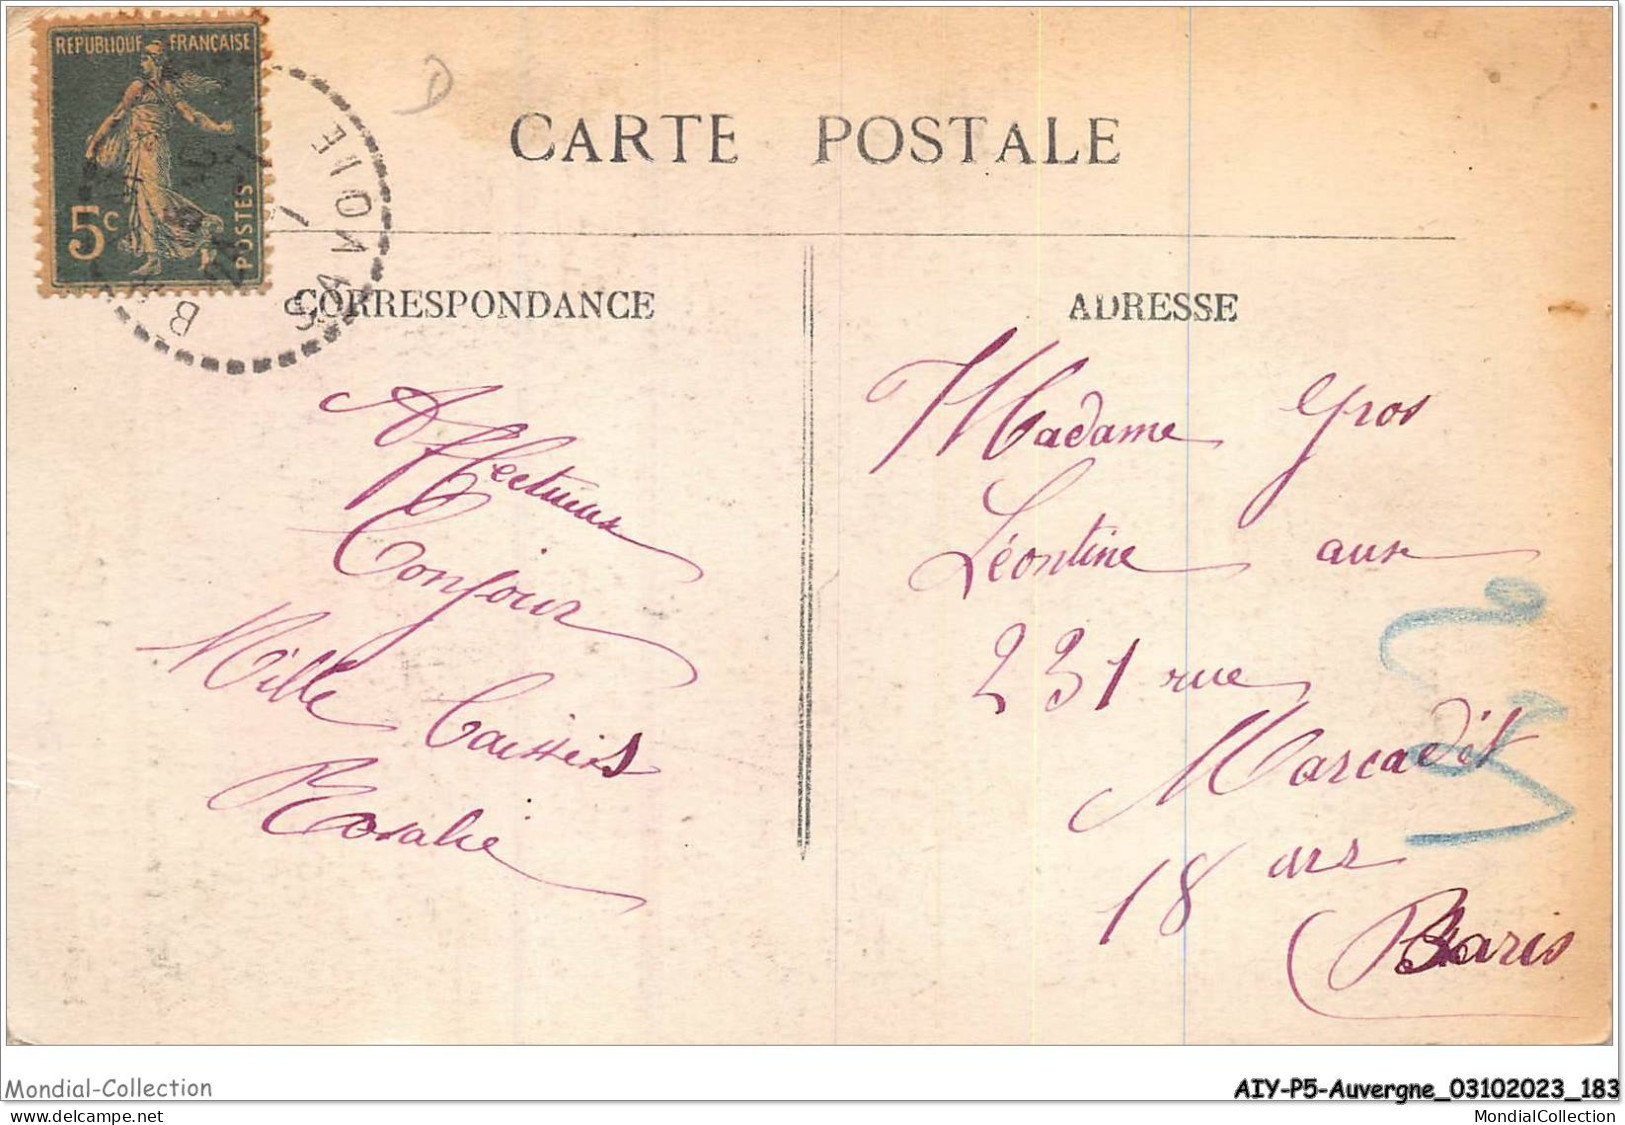 REPUBLIQUE FRANÇAISE
5c
POSTES
SAVOIE
CARTE POSTALE
CORRESPONDANCE
ADRESSE
Affectueux
Bonjour
Mille Baissers
Rosalie
Madame Gros
Léontine
231 rue
Marcadet
18 arr
Paris
Mondial-Collection
www.delcampe.net
AIY-P5-Auvergne_03102023_183
MondialCollection